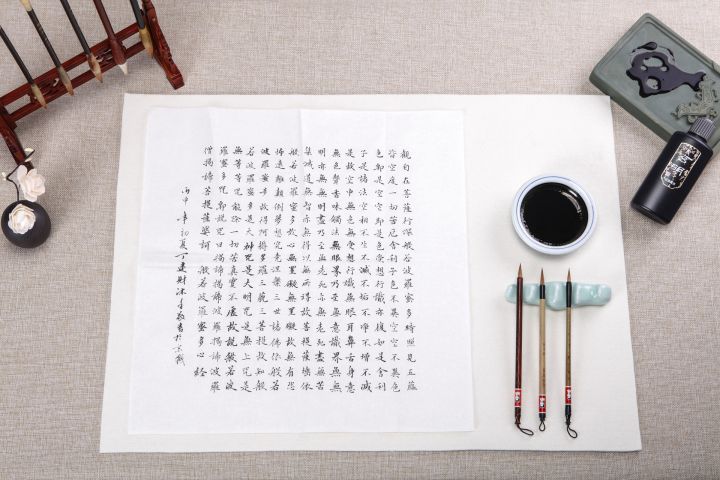 觀自在菩薩行深般若波羅蜜多時照見五蘊
皆空度一切苦厄舍利子色不異空空不異色
色即是空空即是色受想行識亦復如是舍利
子是諸法空相不生不滅不垢不淨不增不減
是故空中無色無受想行識無眼耳鼻舌身意
無色聲香味觸法無眼界乃至無意識界無無
明亦無無明盡乃至無老死亦無老死盡無苦
集滅道無智亦無得以無所得故菩提薩埵依
般若波羅蜜多故心無罣礙無罣礙故無有恐
怖遠離顛倒夢想究竟涅槃三世諸佛依般若
波羅蜜多故得阿耨多羅三藐三菩提故知般
若波羅蜜多是大神咒是大明咒是無上咒是
無等等咒能除一切苦真實不虛故說般若波
羅蜜多咒即說咒曰揭諦揭諦波羅揭諦波羅
僧揭諦菩提薩婆訶 般若波羅蜜多心經
丙申年初夏 書於京